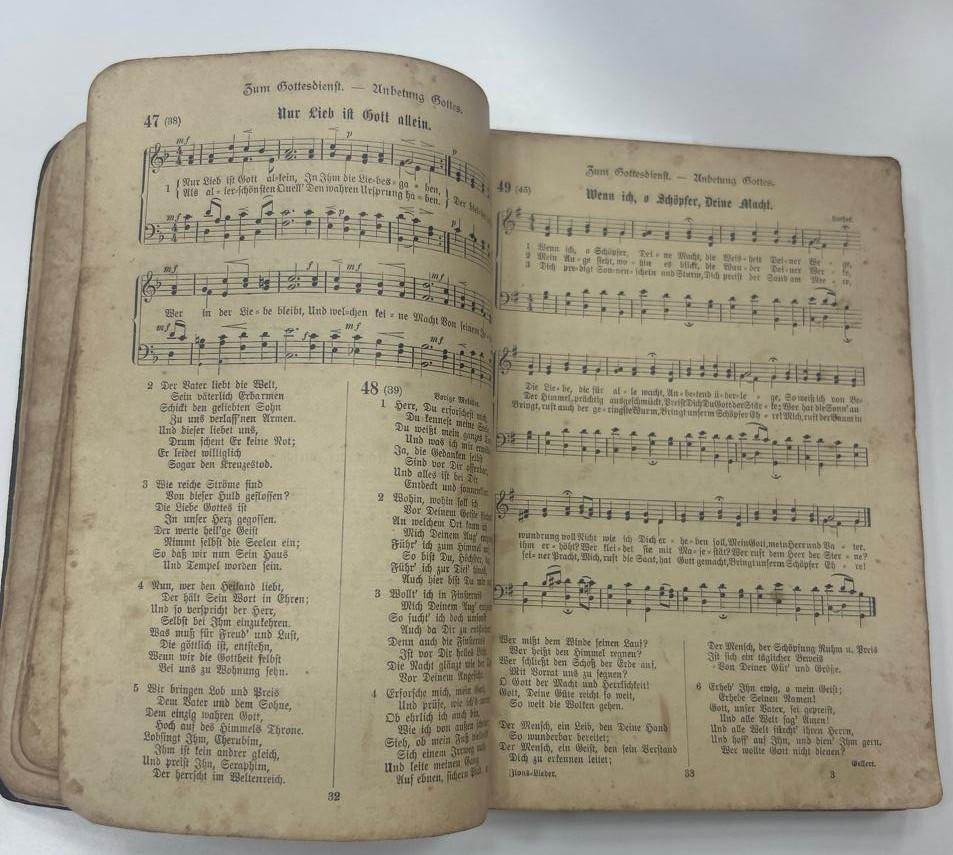 Zum Gottesdienst. — Anbetung Gottes.
47 (38) Nur Lieb ist Gott allein.
mf p p
1 { Nur Lieb ist Gott al=lein, In Ihm die Lie=bes= ga = ben,
Als al = ler=schönsten Quell' Den wahren Ursprung ha = ben. } Der
mf p
mf f mf mf
Wer in der Lie = be bleibt, Und wel=chen kei = ne Macht Von seinem
mf f mf mf
2 Der Vater liebt die Welt,
Sein väterlich Erbarmen
Schickt den geliebten Sohn
Zu uns verlass'nen Armen.
Und dieser liebet uns,
Drum scheut Er keine Not;
Er leidet williglich
Sogar den Kreuzestod.
3 Wie reiche Ströme sind
Von dieser Huld geflossen?
Die Liebe Gottes ist
In unser Herz gegossen.
Der werte heil'ge Geist
Nimmt selbst die Seelen ein;
So daß wir nun Sein Haus
Und Tempel worden sein.
4 Nun, wer den Heiland liebt,
Der hält Sein Wort in Ehren;
Und so verspricht der Herr,
Selbst bei Ihm einzukehren.
Was muß für Freud' und Lust,
Die göttlich ist, entstehn,
Wenn wir die Gottheit selbst
Bei uns zu Wohnung sehn.
5 Wir bringen Lob und Preis
Dem Vater und dem Sohne,
Dem einzig wahren Gott,
Hoch auf des Himmels Throne.
Lobsingt Ihm, Cherubim,
Ihm ist kein andrer gleich,
Und preist Ihn, Seraphim,
Der herrscht im Weltenreich.
48 (39)
Vorige Melodie.
1 Herr, Du erforschest mich,
Du kennest meine
Du weißt mein ganzes
Und was ich mir
Ja, die Gedanken selbst
Sind vor Dir offenbar,
Und alles ist bei Dir
Entdeckt und
2 Wohin, wohin soll ich
Vor Deinem Geiste
An welchem Ort kann
Mich Deinem Aug'
Führ' ich zum Himmel
So bist Du, Höchster,
Führ' ich zur Tief'
Auch hier bist Du
3 Wollt' ich in Finsternis
Mich Deinem Aug'
So sucht' ich doch umsonst
Auch da Dir zu
Denn auch die Finsternis
Ist vor Dir helles
Die Nacht glänzt wie der
Vor Deinem Angesicht.
4 Erforsche mich, mein Gott,
Und prüfe, wie
Ob ehrlich ich auch bin,
Wie ich von außen
Sieh, ob mein Fuß
Sich einem Irrweg
Und leite meinen Gang
Auf ebnen, sichern
32
Zum Gottesdienst. — Anbetung Gottes.
49 (45)
Wenn ich, o Schöpfer, Deine Macht.
1 Wenn ich, o Schöpfer, Dei = ne Macht, die Weis = heit Dei=ner We = ge,
2 Mein Au = ge sieht, wo = hin es blickt, die Wun = der Dei=ner Wer = ke,
3 Dich pre=digt Son=nen=schein und Sturm, Dich preist der Sand am Mee = re,
Die Lie = be, die für al = le wacht, An = be=tend ü = ber=le = ge, So weiß ich von Be=
Der Himmel, prächtig ausgeschmückt, Preist Dich Du Gott der Stär = ke; Wer hat die Sonn' an
Bringt, ruft auch der ge = ringste Wurm, Bringt unserm Schöpfer Eh = re! Mich, ruft der Baum in
wundrung voll Nicht wie ich Dich er = he = ben soll, Mein Gott, mein Herr und Va = ter.
ihm er = höht? Wer klei=det sie mit Ma = je=stät? Wer ruft dem Heer der Ster = ne?
sei=ner Pracht, Mich, ruft die Saat, hat Gott gemacht, Bringt unserm Schöpfer Eh = re!
Wer mißt dem Winde seinen Lauf?
Wer heißt den Himmel regnen?
Wer schließt den Schoß der Erde auf,
Mit Vorrat uns zu segnen?
O Gott der Macht und Herrlichkeit!
Gott, Deine Güte reicht so weit,
So weit die Wolken gehen.
Der Mensch, ein Leib, den Deine Hand
So wunderbar bereitet;
Der Mensch, ein Geist, den sein Verstand
Dich zu erkennen leitet;
Der Mensch, der Schöpfung Ruhm u. Preis
Ist sich ein täglicher Beweis
Von Deiner Güt' und Größe.
6 Erheb' Ihn ewig, o mein Geist;
Erhebe Seinen Namen!
Gott, unser Vater, sei gepreist,
Und alle Welt sag' Amen!
Und alle Welt fürcht' ihren Herrn,
Und hoff' auf Ihn, und dien' Ihm gern.
Wer wollte Gott nicht dienen?
Gellert.
Zions-Lieder. 33 3